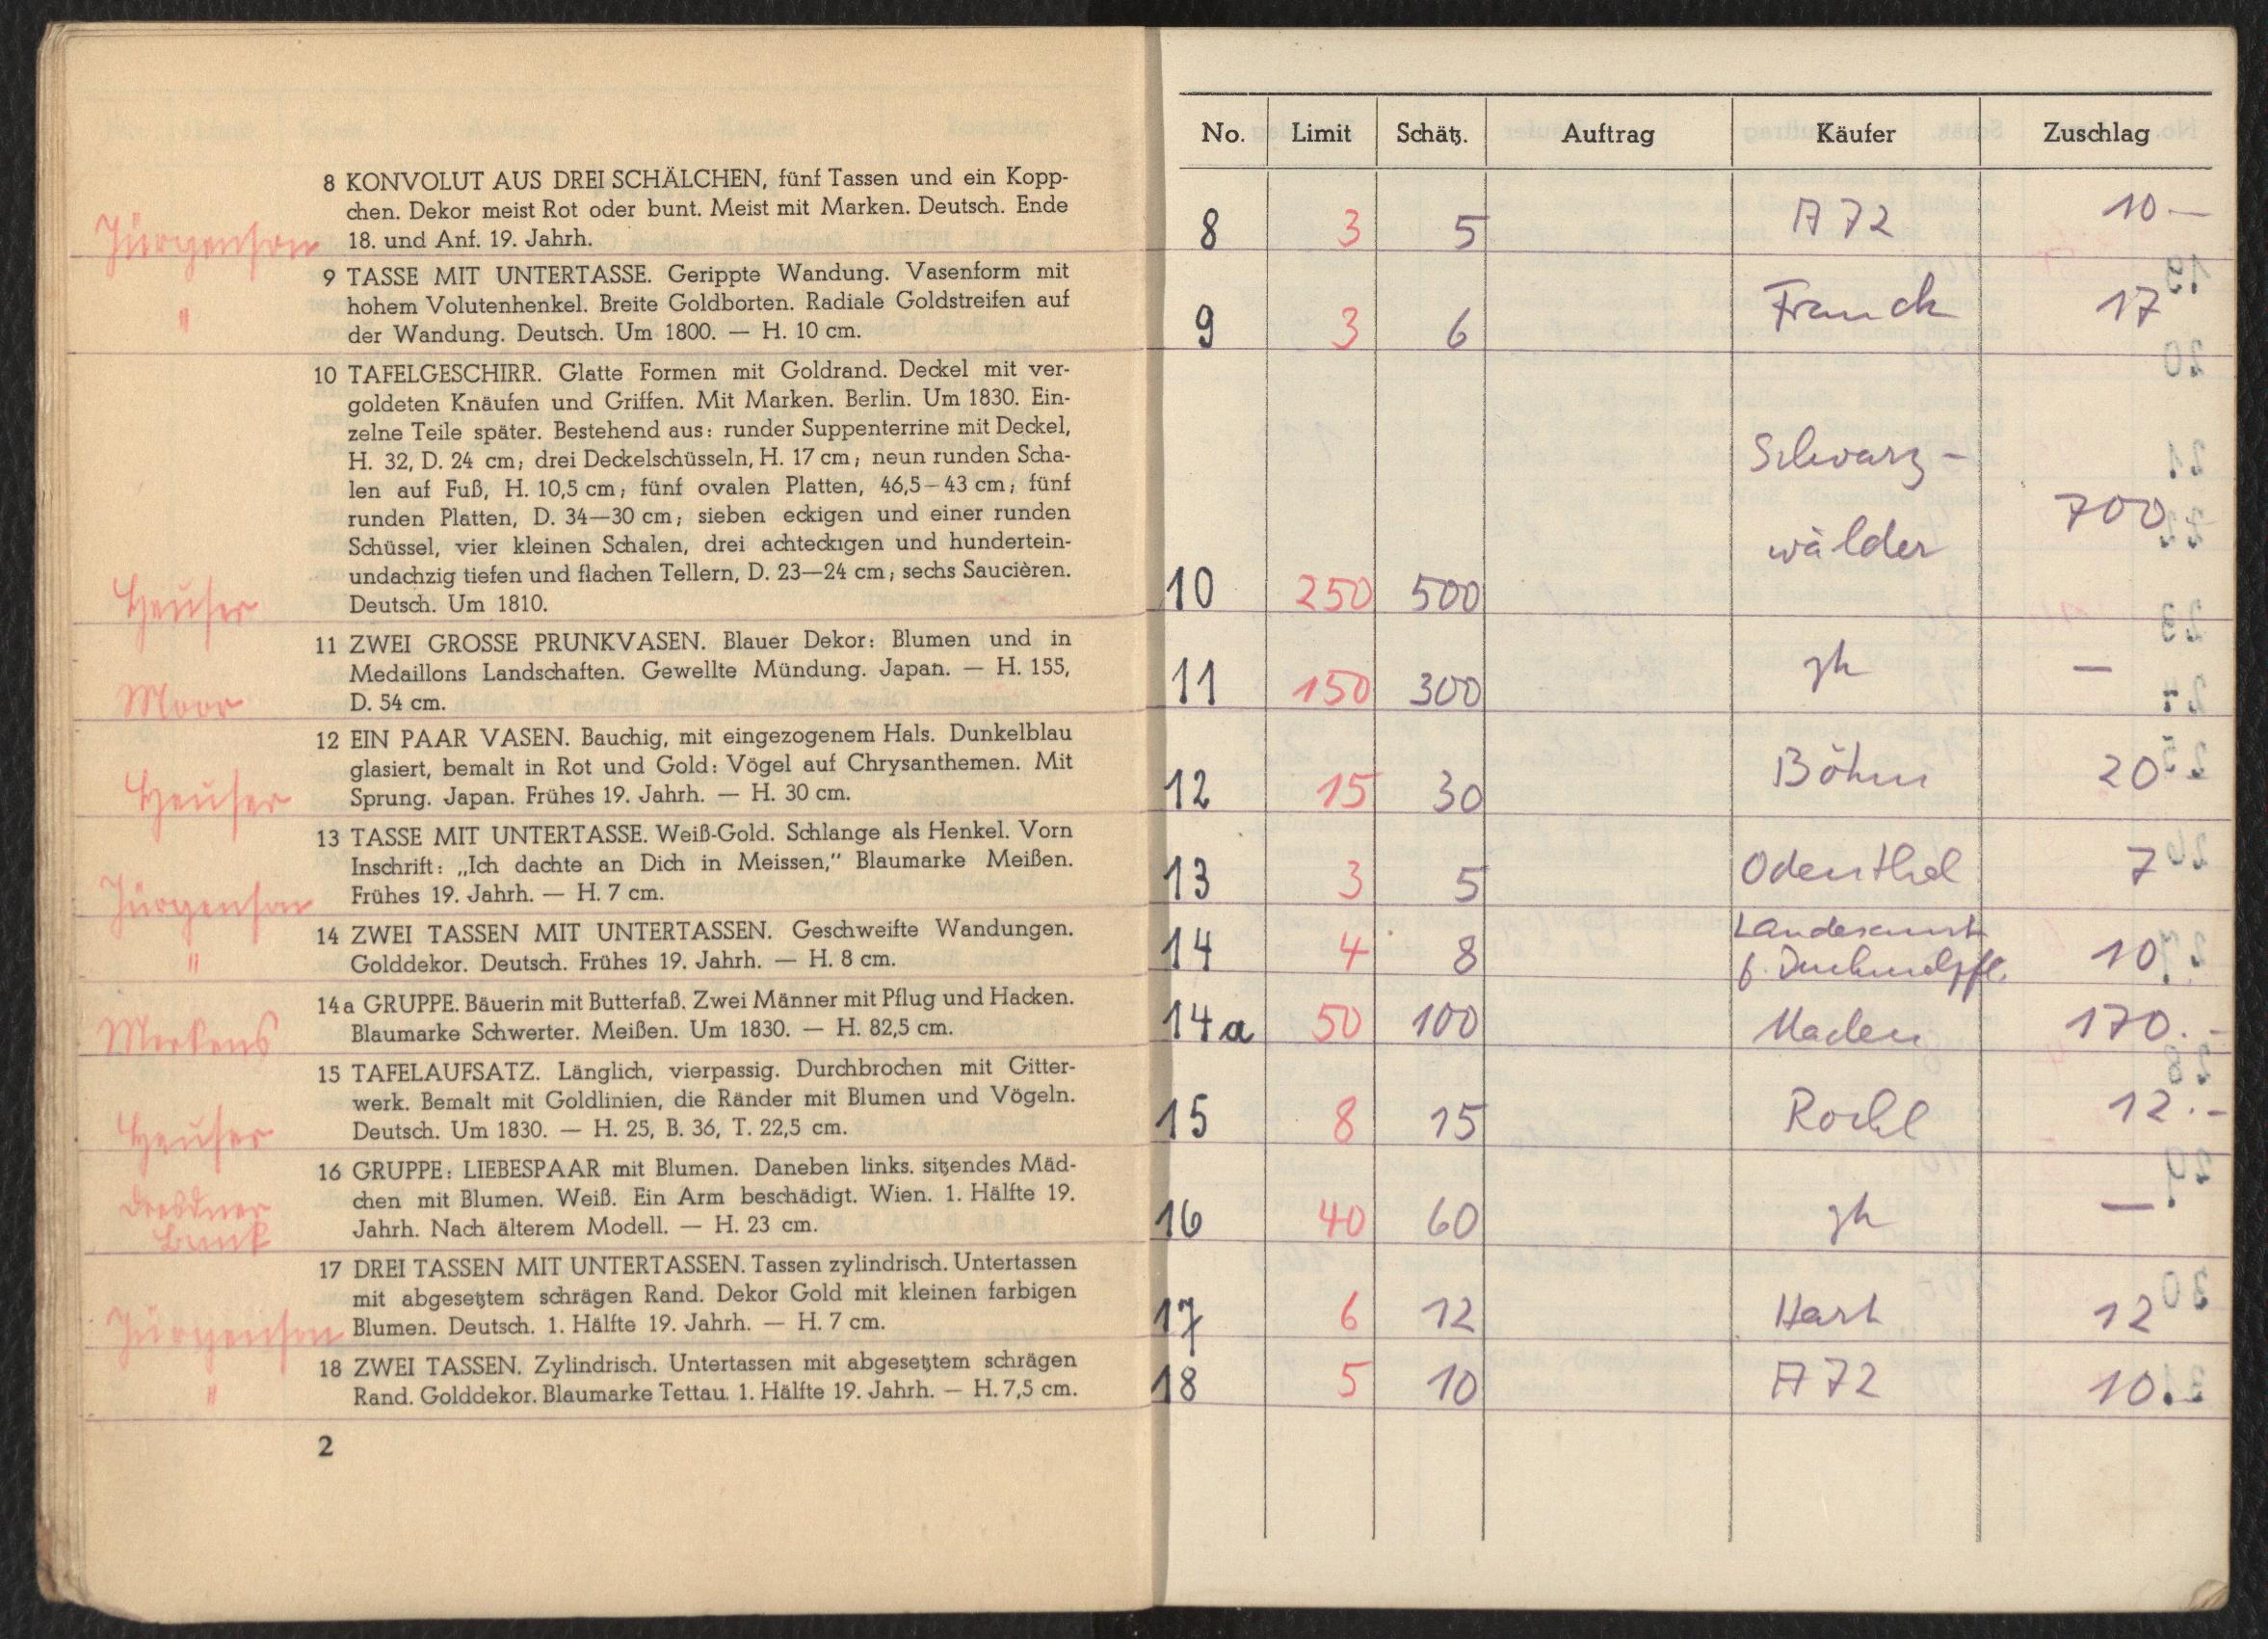 8 KONVOLUT AUS DREI SCHÄLCHEN, fünf Tassen und ein Kopp-
chen. Dekor meist Rot oder bunt. Meist mit Marken. Deutsch. Ende
18. und Anf. 19. Jahrh.
Jürgenson
9 TASSE MIT UNTERTASSE. Gerippte Wandung. Vasenform mit
hohem Volutenhenkel. Breite Goldborten. Radiale Goldstreifen auf
"
der Wandung. Deutsch. Um 1800. — H. 10 cm.
10 TAFELGESCHIRR. Glatte Formen mit Goldrand. Deckel mit ver-
goldeten Knäufen und Griffen. Mit Marken. Berlin. Um 1830. Ein-
zelne Teile später. Bestehend aus: runder Suppenterrine mit Deckel,
H. 32, D. 24 cm; drei Deckelschüsseln, H. 17 cm; neun runden Scha-
len auf Fuß, H. 10,5 cm; fünf ovalen Platten, 46,5–43 cm; fünf
runden Platten, D. 34—30 cm; sieben eckigen und einer runden
Schüssel, vier kleinen Schalen, drei achteckigen und hundertein-
undachzig tiefen und flachen Tellern, D. 23—24 cm; sechs Saucièren.
Heuser Deutsch. Um 1810.
11 ZWEI GROSSE PRUNKVASEN. Blauer Dekor: Blumen und in
Medaillons Landschaften. Gewellte Mündung. Japan. — H. 155,
Moor D. 54 cm.
12 EIN PAAR VASEN. Bauchig, mit eingezogenem Hals. Dunkelblau
glasiert, bemalt in Rot und Gold: Vögel auf Chrysanthemen. Mit
Heuser Sprung. Japan. Frühes 19. Jahrh. — H. 30 cm.
13 TASSE MIT UNTERTASSE. Weiß-Gold. Schlange als Henkel. Vorn
Inschrift: „Ich dachte an Dich in Meissen,“ Blaumarke Meißen.
Jürgenson Frühes 19. Jahrh. — H. 7 cm.
14 ZWEI TASSEN MIT UNTERTASSEN. Geschweifte Wandungen.
" Golddekor. Deutsch. Frühes 19. Jahrh. — H. 8 cm.
14a GRUPPE. Bäuerin mit Butterfaß. Zwei Männer mit Pflug und Hacken.
Merkens Blaumarke Schwerter. Meißen. Um 1830. — H. 82,5 cm.
15 TAFELAUFSATZ. Länglich, vierpassig. Durchbrochen mit Gitter-
werk. Bemalt mit Goldlinien, die Ränder mit Blumen und Vögeln.
Heuser Deutsch. Um 1830. — H. 25, B. 36, T. 22,5 cm.
16 GRUPPE: LIEBESPAAR mit Blumen. Daneben links. sitzendes Mäd-
Dresdner chen mit Blumen. Weiß. Ein Arm beschädigt. Wien. 1. Hälfte 19.
Bank Jahrh. Nach älterem Modell. — H. 23 cm.
17 DREI TASSEN MIT UNTERTASSEN. Tassen zylindrisch. Untertassen
mit abgesetztem schrägen Rand. Dekor Gold mit kleinen farbigen
Jürgenson Blumen. Deutsch. 1. Hälfte 19. Jahrh. — H. 7 cm.
18 ZWEI TASSEN. Zylindrisch. Untertassen mit abgesetztem schrägen
" Rand. Golddekor. Blaumarke Tettau. 1. Hälfte 19. Jahrh. — H. 7,5 cm.
2
No. Limit Schätz. Auftrag Käufer Zuschlag
8 3 5 A 72 10.—
9 3 6 Franck 17
Schwarz-
wälder
10 250 500 700
11 150 300 zh —
12 15 30 Böhm 20
13 3 5 Odenthal 7
Landesamt
14 4 8 f. Denkmalpfl. 10
14a 50 100 170.-
15 8 15 12.-
16 40 60 zh —
17 6 12 12
18 5 10 A 72 10.